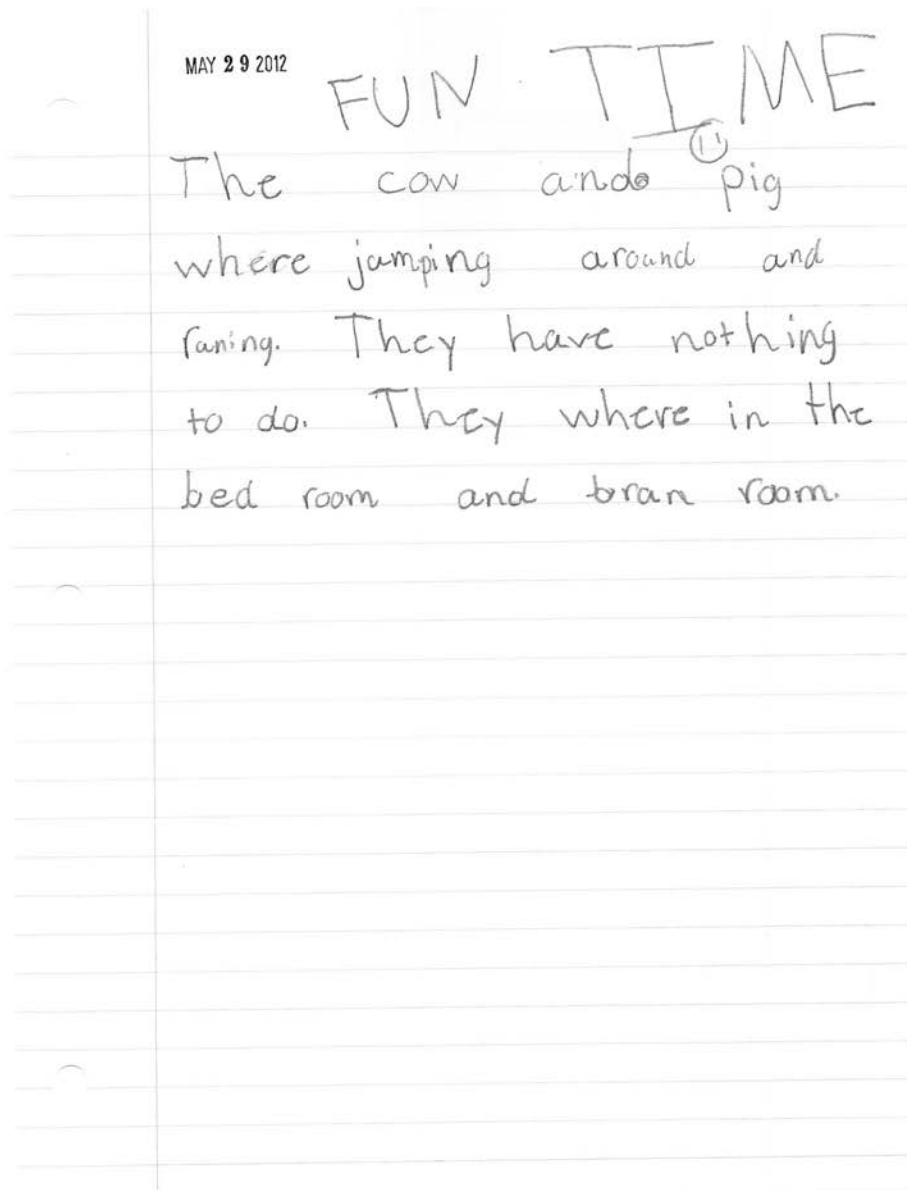 MAY 29 2012
FUN TIME
The cow and pig
where jamping around and
raning. They have nothing
to do. They where in the
bed room and bran room.